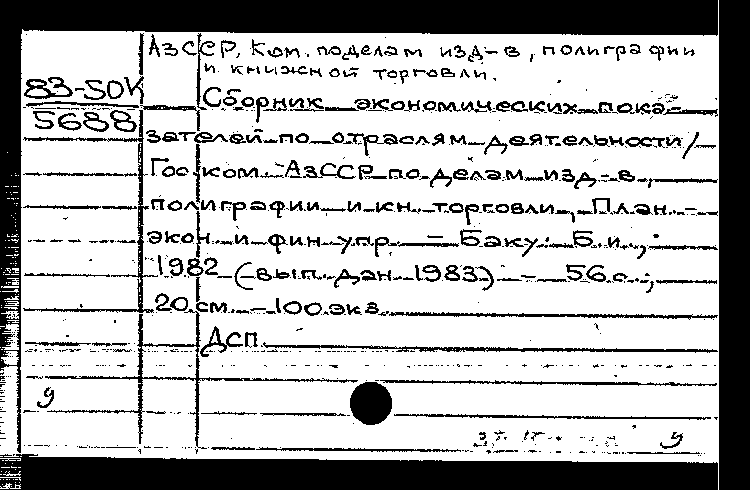 АзССР. Ком. по делам изд-в, полиграфии
и книжной торговли.
83-50К
5688
Сборник экономических пока-
зателей по отраслям деятельности /
Гос. ком. АзССР по делам изд-в,
полиграфии и кн. торговли, План.-
экон. и фин. упр. - Баку: Б.и.,
1982 (вып. дан. 1983) - 56 с.;
20 см - 100 экз.
ДСП